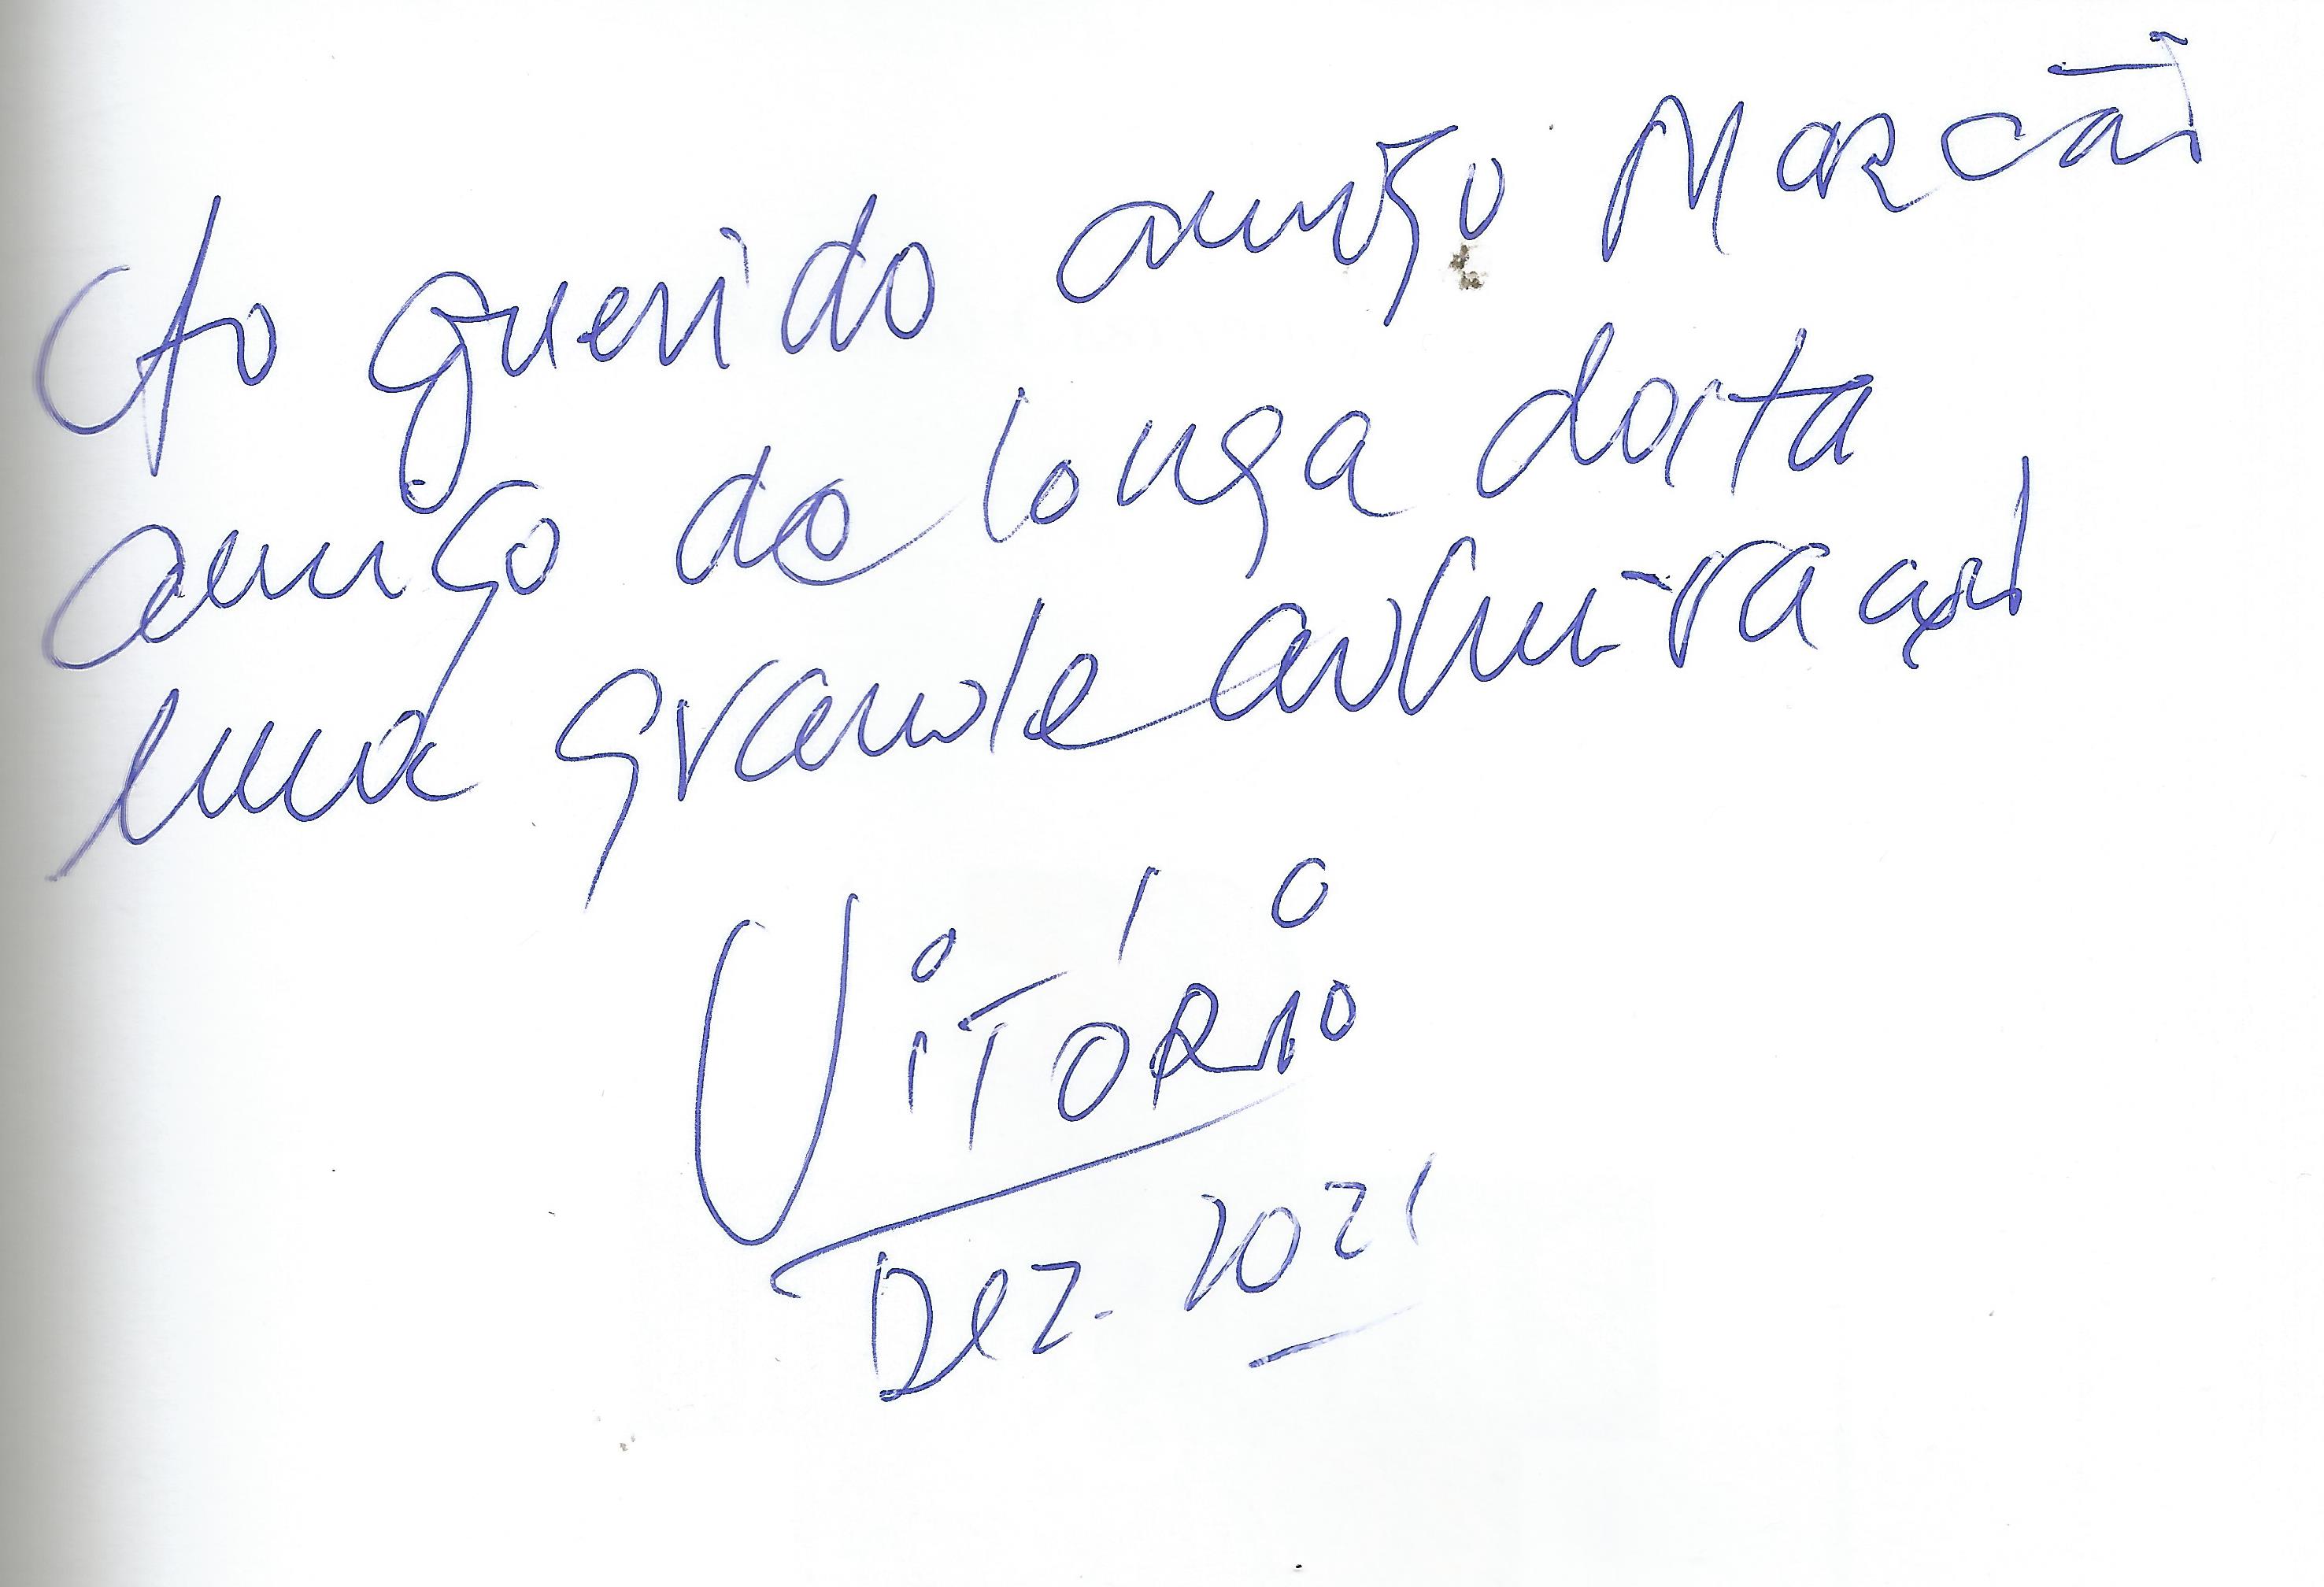 Ao querido amigo
amigo de longa data
uma grande
VITÓRIO
DEZ. 2021